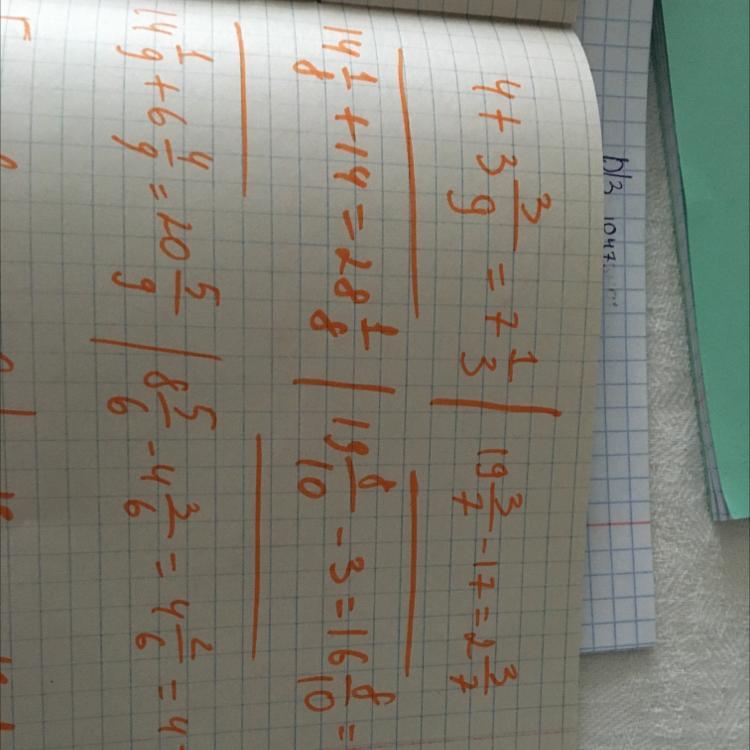 D/з 1047
4 + 3 3/9 = 7 1/3 | 19 3/7 - 17 = 2 3/7
14 1/8 + 14 = 28 1/8 | 19 8/10 - 3 = 16 8/10 =
14 1/9 + 6 4/9 = 20 5/9 | 8 5/6 - 4 3/6 = 4 2/6 = 4